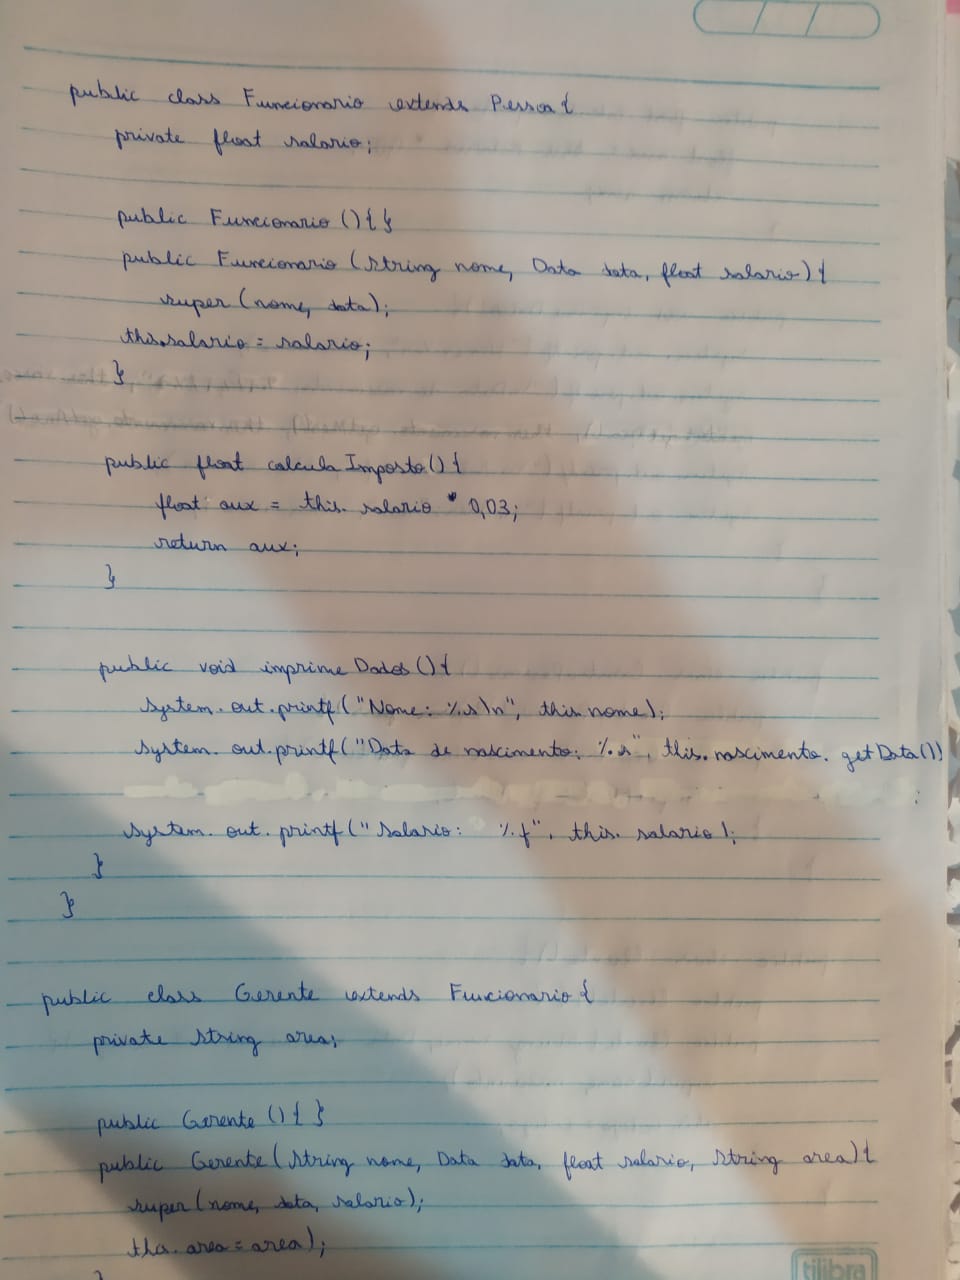 public class Funcionario extends Pessoa{
private float salario;
public Funcionario (){ }
public Funcionario (String nome, Data data, float salario){
super (nome, data);
this.salario = salario;
}
public float calcula Imposto(){
float aux = this. salario * 0,03;
return aux;
}
public void imprime Dados (){
System. out. printf ("Nome: %s\n", this nome);
System. out. printf ("Data de nascimento: %s", this. nascimento. getData())
;
System. out. printf ("Salario: %f", this. salario);
}
}
public class Gerente extends Funcionario {
private String area;
public Gerente (){ }
public Gerente (String nome, Data data, float salario, String area){
super (nome, data, salario);
this. area = area);
}
tilibra